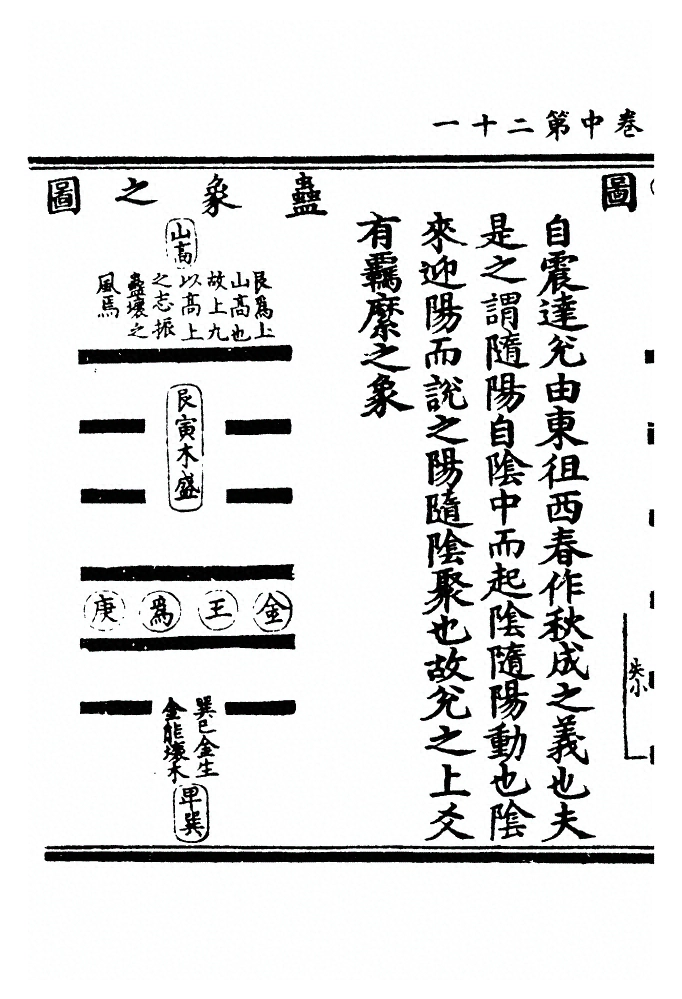 卷中第二十一
圖
失小
自震達兌由東徂西春作秋成之義也夫
是之謂隨陽自陰中而起陰隨陽動也陰
來迎陽而說之陽隨陰聚也故兌之上爻
有羈縻之象
蠱象之圖
山高
艮爲上
山高也
故上九
以高上
之志振
蠱壞之
風焉
艮寅木盛
金王爲庚
巽巳金生
金能壞木
甲巽